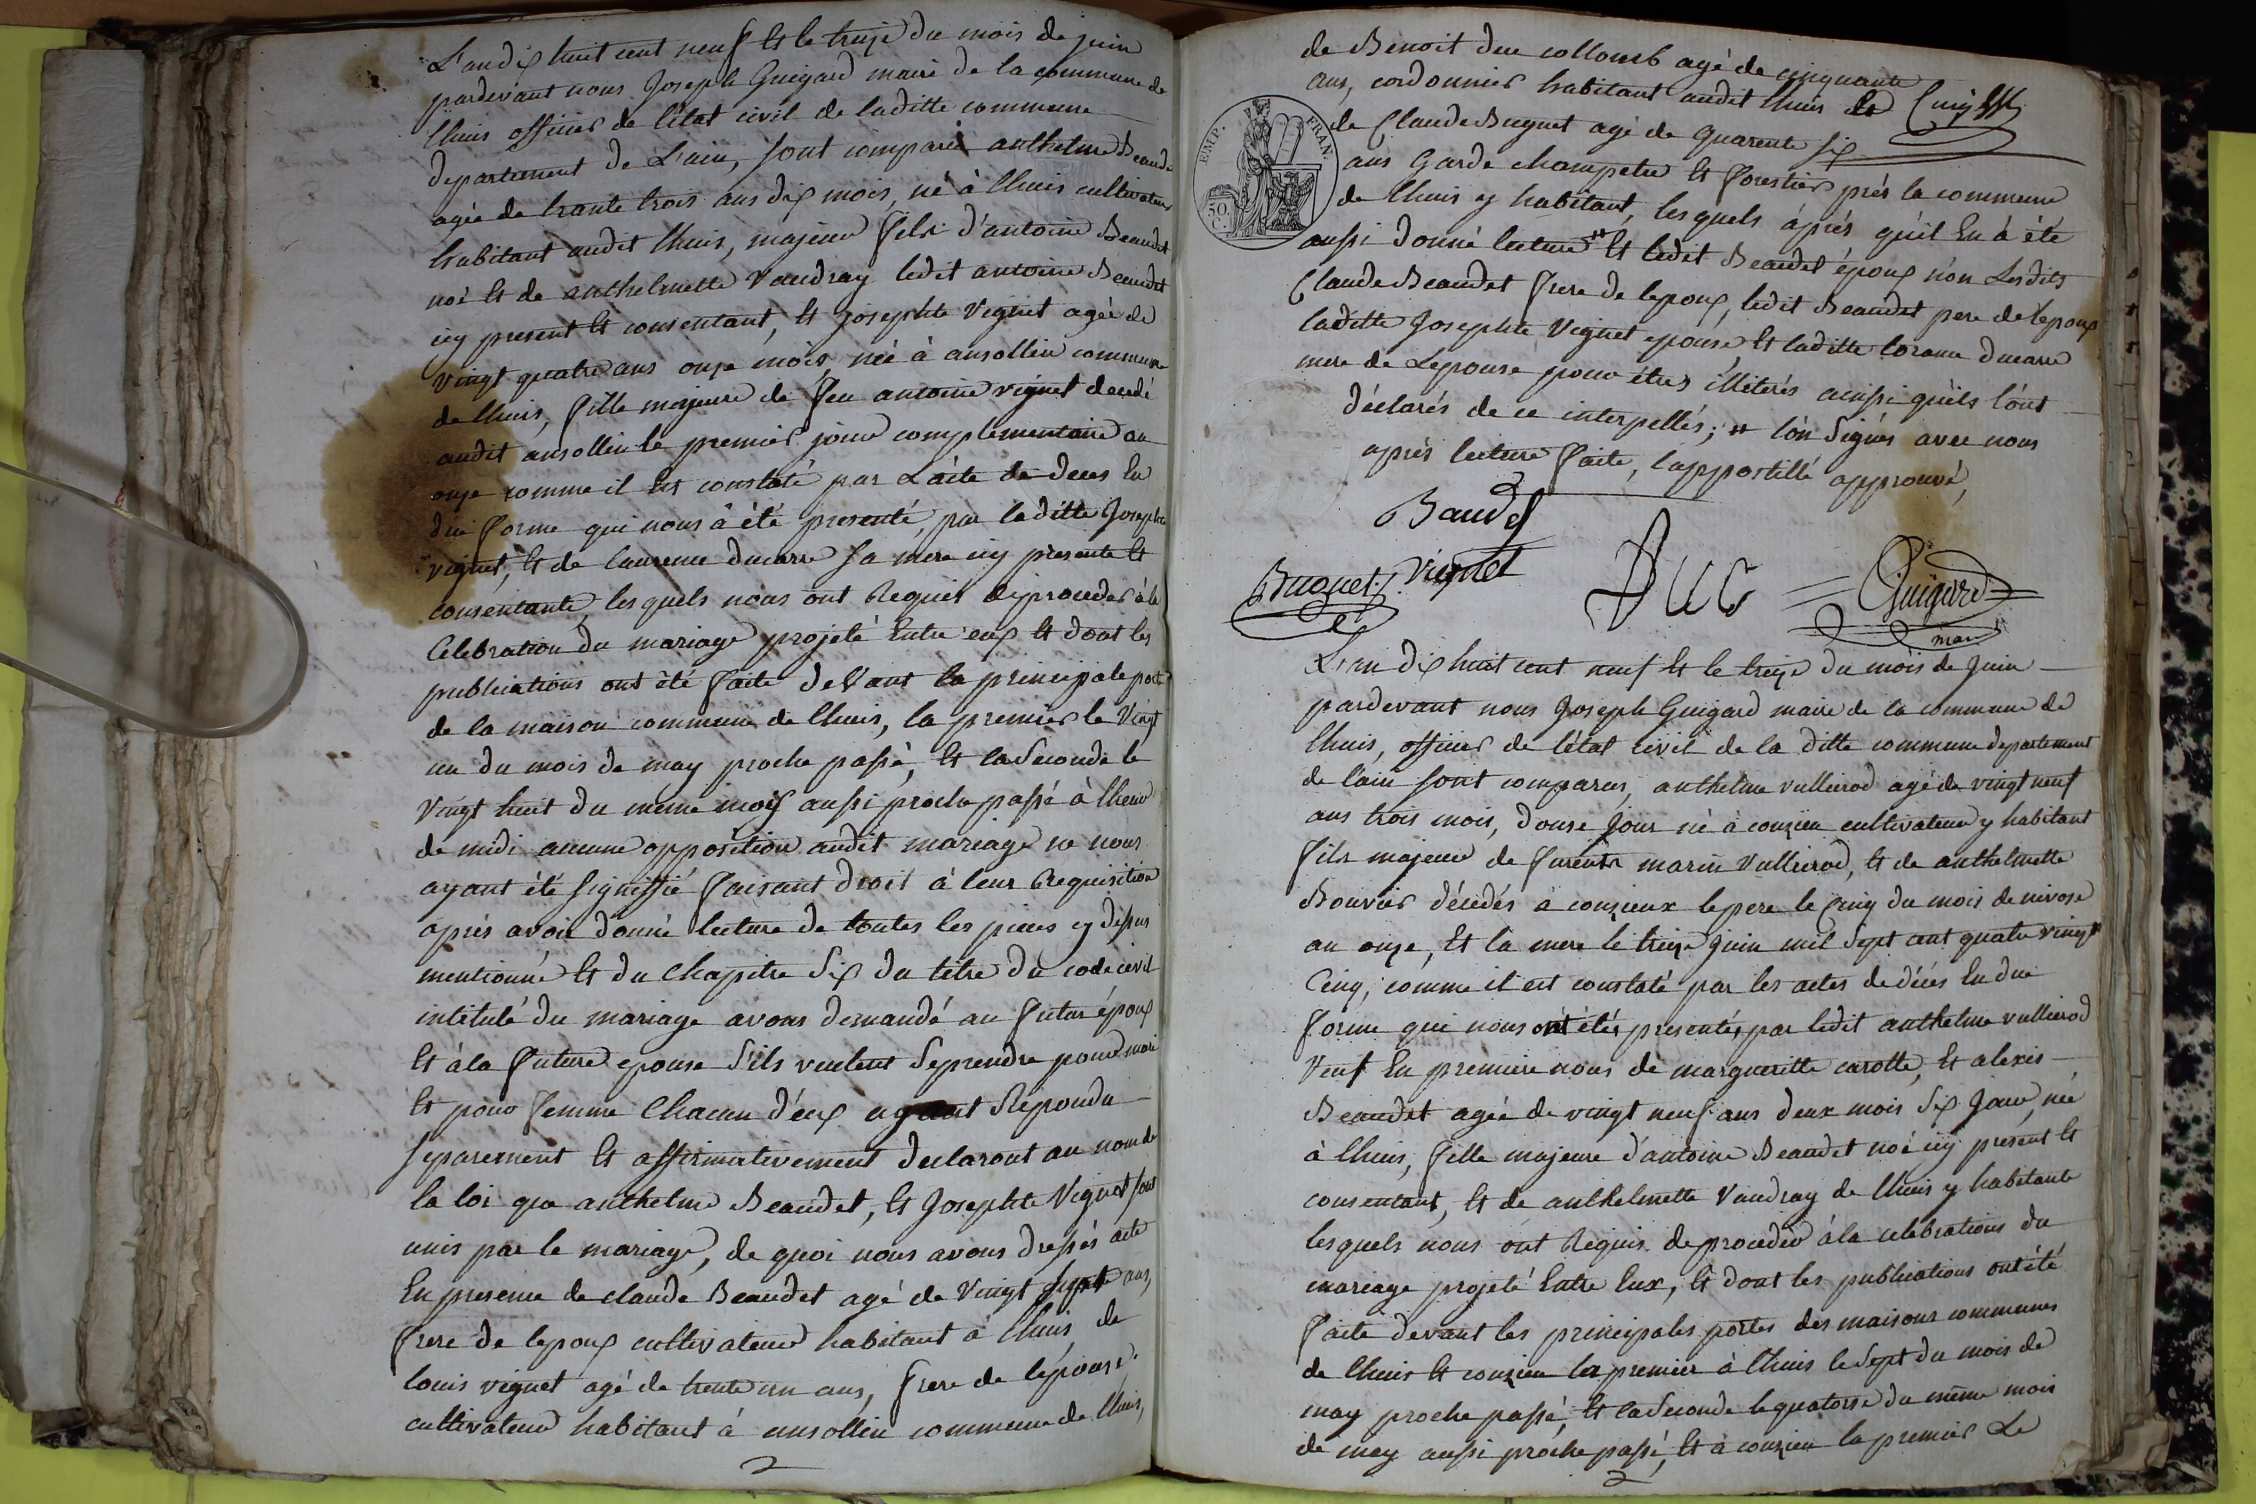 L'an dix huit cent neuf et le treize du mois de juin
pardevant nous Joseph Guigard maire de la commune de
lhuis officier de l'état civil de laditte commune
departement de L'ain, sont comparu anthelme Beaudet
agée de trante trois ans dix mois, né à lhuis cultivateur
habitant audit lhuis, majeur fils d'antoine Beaudet
noé et de anthelmette Vaudray ledit antoine Beaudet
icy present et consentant, et Josephte Vignet agée de
vingt quatre ans onze mois, née à ansollin commune
de lhuis, fille majeure de feu antoine vignet decedé
audit ansollin le premier jour complementaire an
onze comme il est constaté par L'acte de deces En
due forme qui nous à été presenté, par laditte Josephte
vignet, et de laurence ducarre sa mere icy presente et
consentante, les quels nous ont Requis de proceder à la
Celebration du mariage projeté Entre eux et dont les
publications ont été faite de Vant la principale porte
de la maison commune de lhuis, la premier le Vingt
un du mois de may proche passé, et la Seconde le
Vingt huit du meme mois aussi proche passé à lheur
de midi aucune opposition audit mariage ne nous
ayant été signiffié faisant droit à leur Requisition
après avoir donné lecture de toutes les pieces cy dessus
mentionné et du chapitre Six du titre du code civil
intitulé du mariage avons demandé au futur époux
Et à la future epouse S'ils veulent Se prendre pour mari
Et pour femme Chacun d'eux ayant Répondu
separement et affirmativement declaront au nom de
la loi que anthelme Beaudet, et Josephte Vignet sont
unis par le mariage, de quoi nous avons dressés acte
En presence de claude Beaudet agé de Vingt sept ans,
frere de lepoux cultivateur habitant à lhuis, de
louis vignet agé de trente un ans, frere de lépouse,
cultivateur habitant à ansollin commune de lhuis,
2
de Benoit duc collomb agé de cinquante Cinq
ans, cordonnier habitant audit lhuis et
de Claude Buguet agé de quarente six
ans Garde champetre et forestier prés la commune
EMP. FRAN.
50. C.
de lhuis y habitant, les quels áprés qu'il En à été
aussi donné lecture # et ledit Beaudet époux n'on Lesdits
Claude Beaudet frere de lepoux, ledit Beaudet pere de lepoux
laditte Josephte Vignet epouse et laditte lorance ducarre
mere de Lepouse pour étres illiterés ainsi qu'ils l'ont
déclarés de ce interpellés; # l'on Signés avec nous
aprés lecture faite, l'appostillé approuvé,
Baudet
Buguet Vignet Duc Guigard
maire
L'an dix huit cent neuf et le treize du mois de Juin
pardevant nous Joseph Guigard maire de la commune de
lhuis, officier de l'état civil de la ditte commune departement
de l'ain sont comparus, anthelme vullierod agé de vingt neuf
ans trois mois, douse jour né à conzieu cultivateur y habitant
fils majeur de marin Vullierod, et de anthelmette
Bouvier décédés à conzieux le pere le Cinq du mois de nivose
an onze, Et la mere le treize juin mil Sept cent quatre vingt
Cinq, comme il est constaté par les actes de décés En due
forme qui nous ont étés presentés par ledit anthelme vullierod
Veuf En premiere nous de margueritte carotte, et alexis
Beaudet agée de vingt neuf ans deux mois Six Jour, née
à lhuis, fille majeure d'antoine Beaudet noé icy présent et
consentant, et de anthelmette Vaudray de lhuis y habitante
lesquels nous ont Réquis de proceder à la celebrations du
mariage projeté Entre Eux, et dont les publications ont été
faite devant les principales portes des maisons communes
de lhuis et conzieu la premier à lhuis le Sept du mois de
may proche passé, et la Seconde le quatorse du même mois
de may aussi proche passé, et à conzieu la premier Le
2